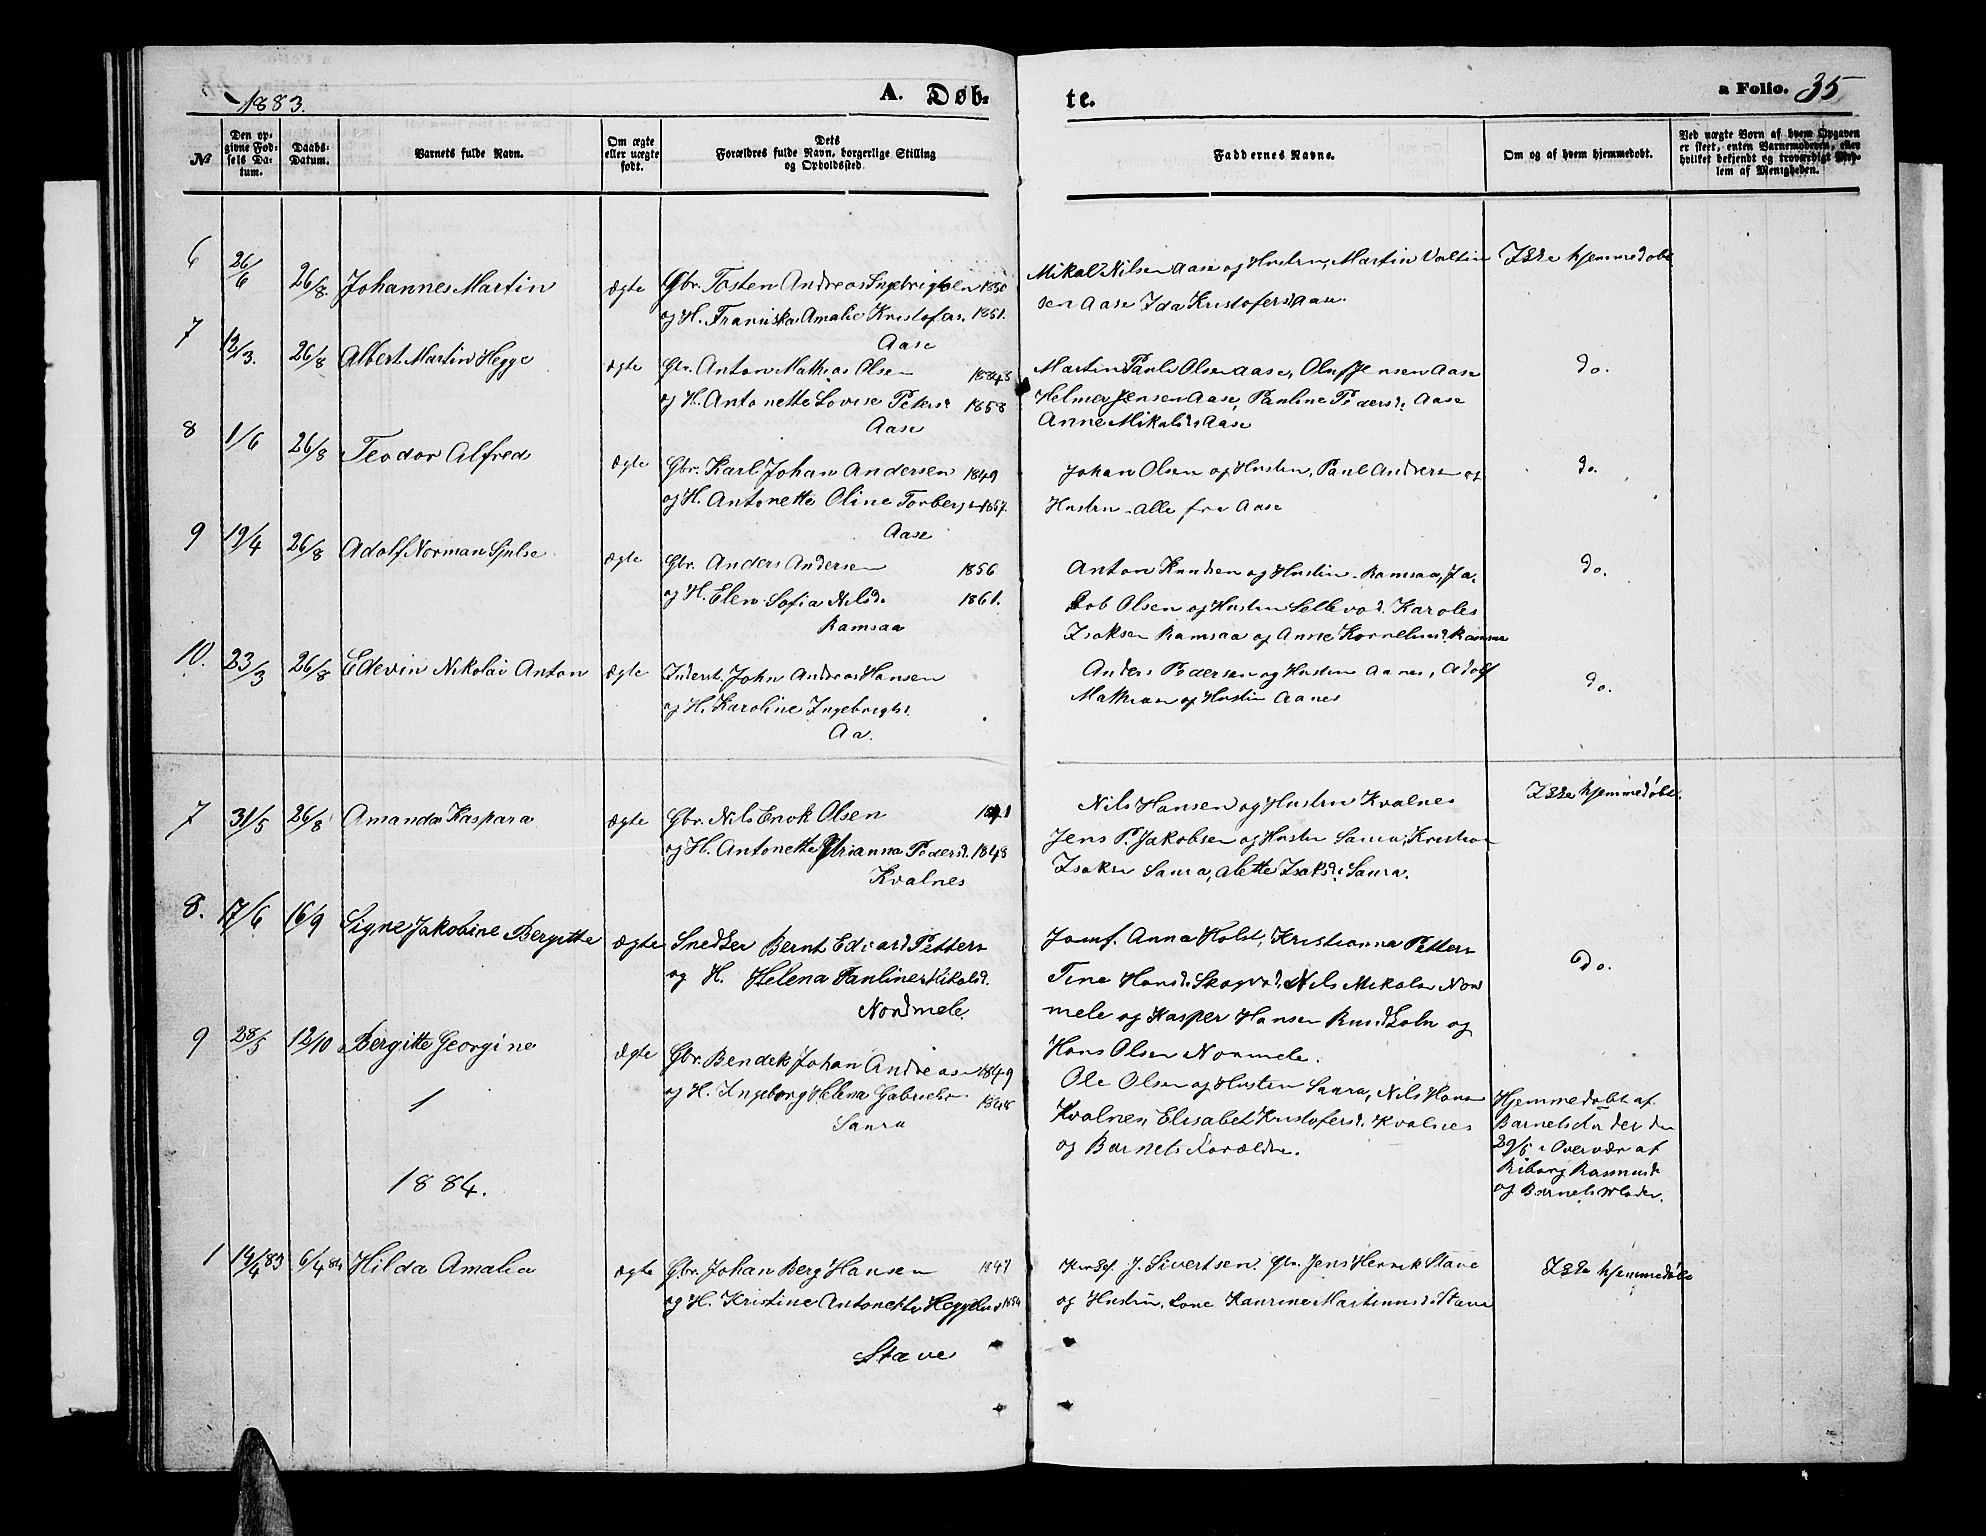 1883.
A. Døb-
te.
a Folio. 35
№
Den op-
givne Fød-
sels Da-
tum.
Daabs-
Datum.
Barnets fulde Navn.
Om ægte
eller uægte
født.
Dets
Forældres fulde Navn, borgerlige Stilling
og Opholdssted.
Faddernes Navne.
Om og af hvem hjemmedøbt.
Ved uægte Børn af hvem Opgaven
er skeet, enten Barnemoderen, eller
hvilket bekjendt og troværdigt Med-
lem af Menigheden.
6 26/6 26/8 Johannes Martin ægte Gbr. Tosten Andreas Ingebrigtsen 1850
og H. Franiska Amalie Kristofers. 1851.
Aase
Mikal Nilsen Aase og Hustru, Martin Valtin
sen Aase Ida Kristofersd Aase.
Ikke hjemmedøbt
7 12/3. 26/8 Albert Martin Hegge ægte Gbr. Anton Mathias Olsen
og H. Antonette Lovise Petersd 1858
Aase
Martin Paul Olsen Aase, Oluf Jensen Aase
Helmer Jensen Aase, Pauline Pedersd. Aase
Anne Mikalsd Aase
do.
8 1/6 26/8 Teodor Alfred ægte Gbr. Karl Johan Andersen 1849
og H. Antonette Oline Torbergs 1857.
Aase
Johan Olsen og Hustru, Paul Andersen og
Hustru - alle fra Aase
do.
9 19/4 26/8 Adolf Norman ægte Gbr. Anders Andersen 1856
og H. Elen Sofia Nilsd. 1861.
Ramsaa
Anton Knudsen og Hustru Ramsaa, Ja-
kob Olsen og Hustru Sellevod. Karoles
Isaksen Ramsaa og Anne Korneliusd. Ramsaa
do.
10. 23/3 26/8 Edevin Nikolai Anton ægte Inderst. John Andreas Hansen
og H. Karoline Ingebrigts.
Aa.
Anders Pedersen og Hustru Aanes, Adolf
Mathisen og Hustru Aanes
do.
7 31/5 26/8 Amanda Kaspara ægte Gbr. Nils Enok Olsen
og H. Antonette Arianna Pedersd. 1848
Kvalnes
Nils Hansen og Hustru Kvalnes
Jens P. Jakobsen og Hustru Saura, Kristian
Isaksen Saura, Alette Isaksd. Saura.
Ikke hjemmedøbt.
8. 17/6 16/9 Signe Jakobine Bergitte ægte Snedker Bernt Edvard Petters
og H. Helena Pauline Mikalsd.
Nordmele.
Jomf. Anna Holst, Kristianna Petters
Tine Hansd. Skogvod, Nils Mikalsen Nor
mele og Kasper Hansen og
Hans Olsen Normele.
do.
9 28/5 12/10 Bergitte Georgine ægte Gbr. Bendik Johan Andreasen 1849
og H. Ingeborg Helena Gabrielsd. 1848
Saura
1
Ole Olsen og Hustru Saura, Nils Hans
Kvalnes, Elisabet Kristofersd. Kvalnes
og Barnets Forældre.
Hjemmedøbt af
Barnets Fader den
29/5 i Overvær af
Riborg Rasmusd.
og Barnets Moder.
1884.
1 14/4 83 6/4 84 Hilda Amalia ægte Gbr. Johan Berg Hansen 1847
og H. Kristine Antonette Heggelund 1854
Stave
J. Sivertsen. Gbr. Jens Henrik Stave
og Hustru, Lone Kaurine Martinusd. Stave
Ikke hjemmedøbt